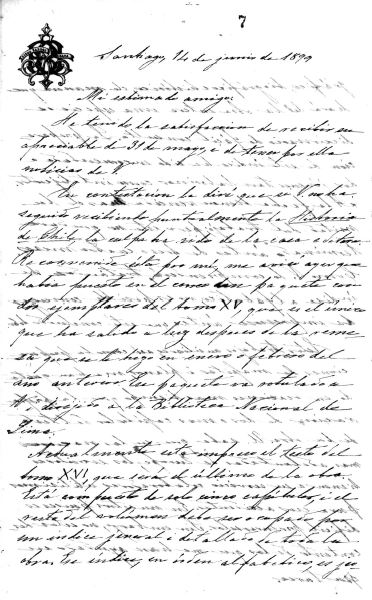 7
Santiago, 14 de junio de 1899
Mi estimado amigo:
He tenido la satisfaccion de recibir su
apreciable de 31 de mayo, i de tener por ella
noticias de V.
En contestacion le diré que si V no ha
seguido recibiendo puntualmente la Historia
de Chile, la culpa ha sido de la casa editora.
Reconvenida ésta por mí, me avisó ayer que
habia puesto en el correo un paquete con
dos ejemplares del tomo XV, que es el único
que ha salido a luz despues de la remesa
que se le hizo en enero o febrero del
año anterior. Ese paquete va rotulado a
V. dirijido a la Biblioteca Nacional de
Lima.
Actualmente está impreso el testo del
tomo XVI, que será el último de la obra.
Está compuesto de solo cinco capítulos; i el
resto del volúmen debe ser ocupado por
un índice jeneral i detallado de toda la
obra. Ese índice, en órden alfabético, es